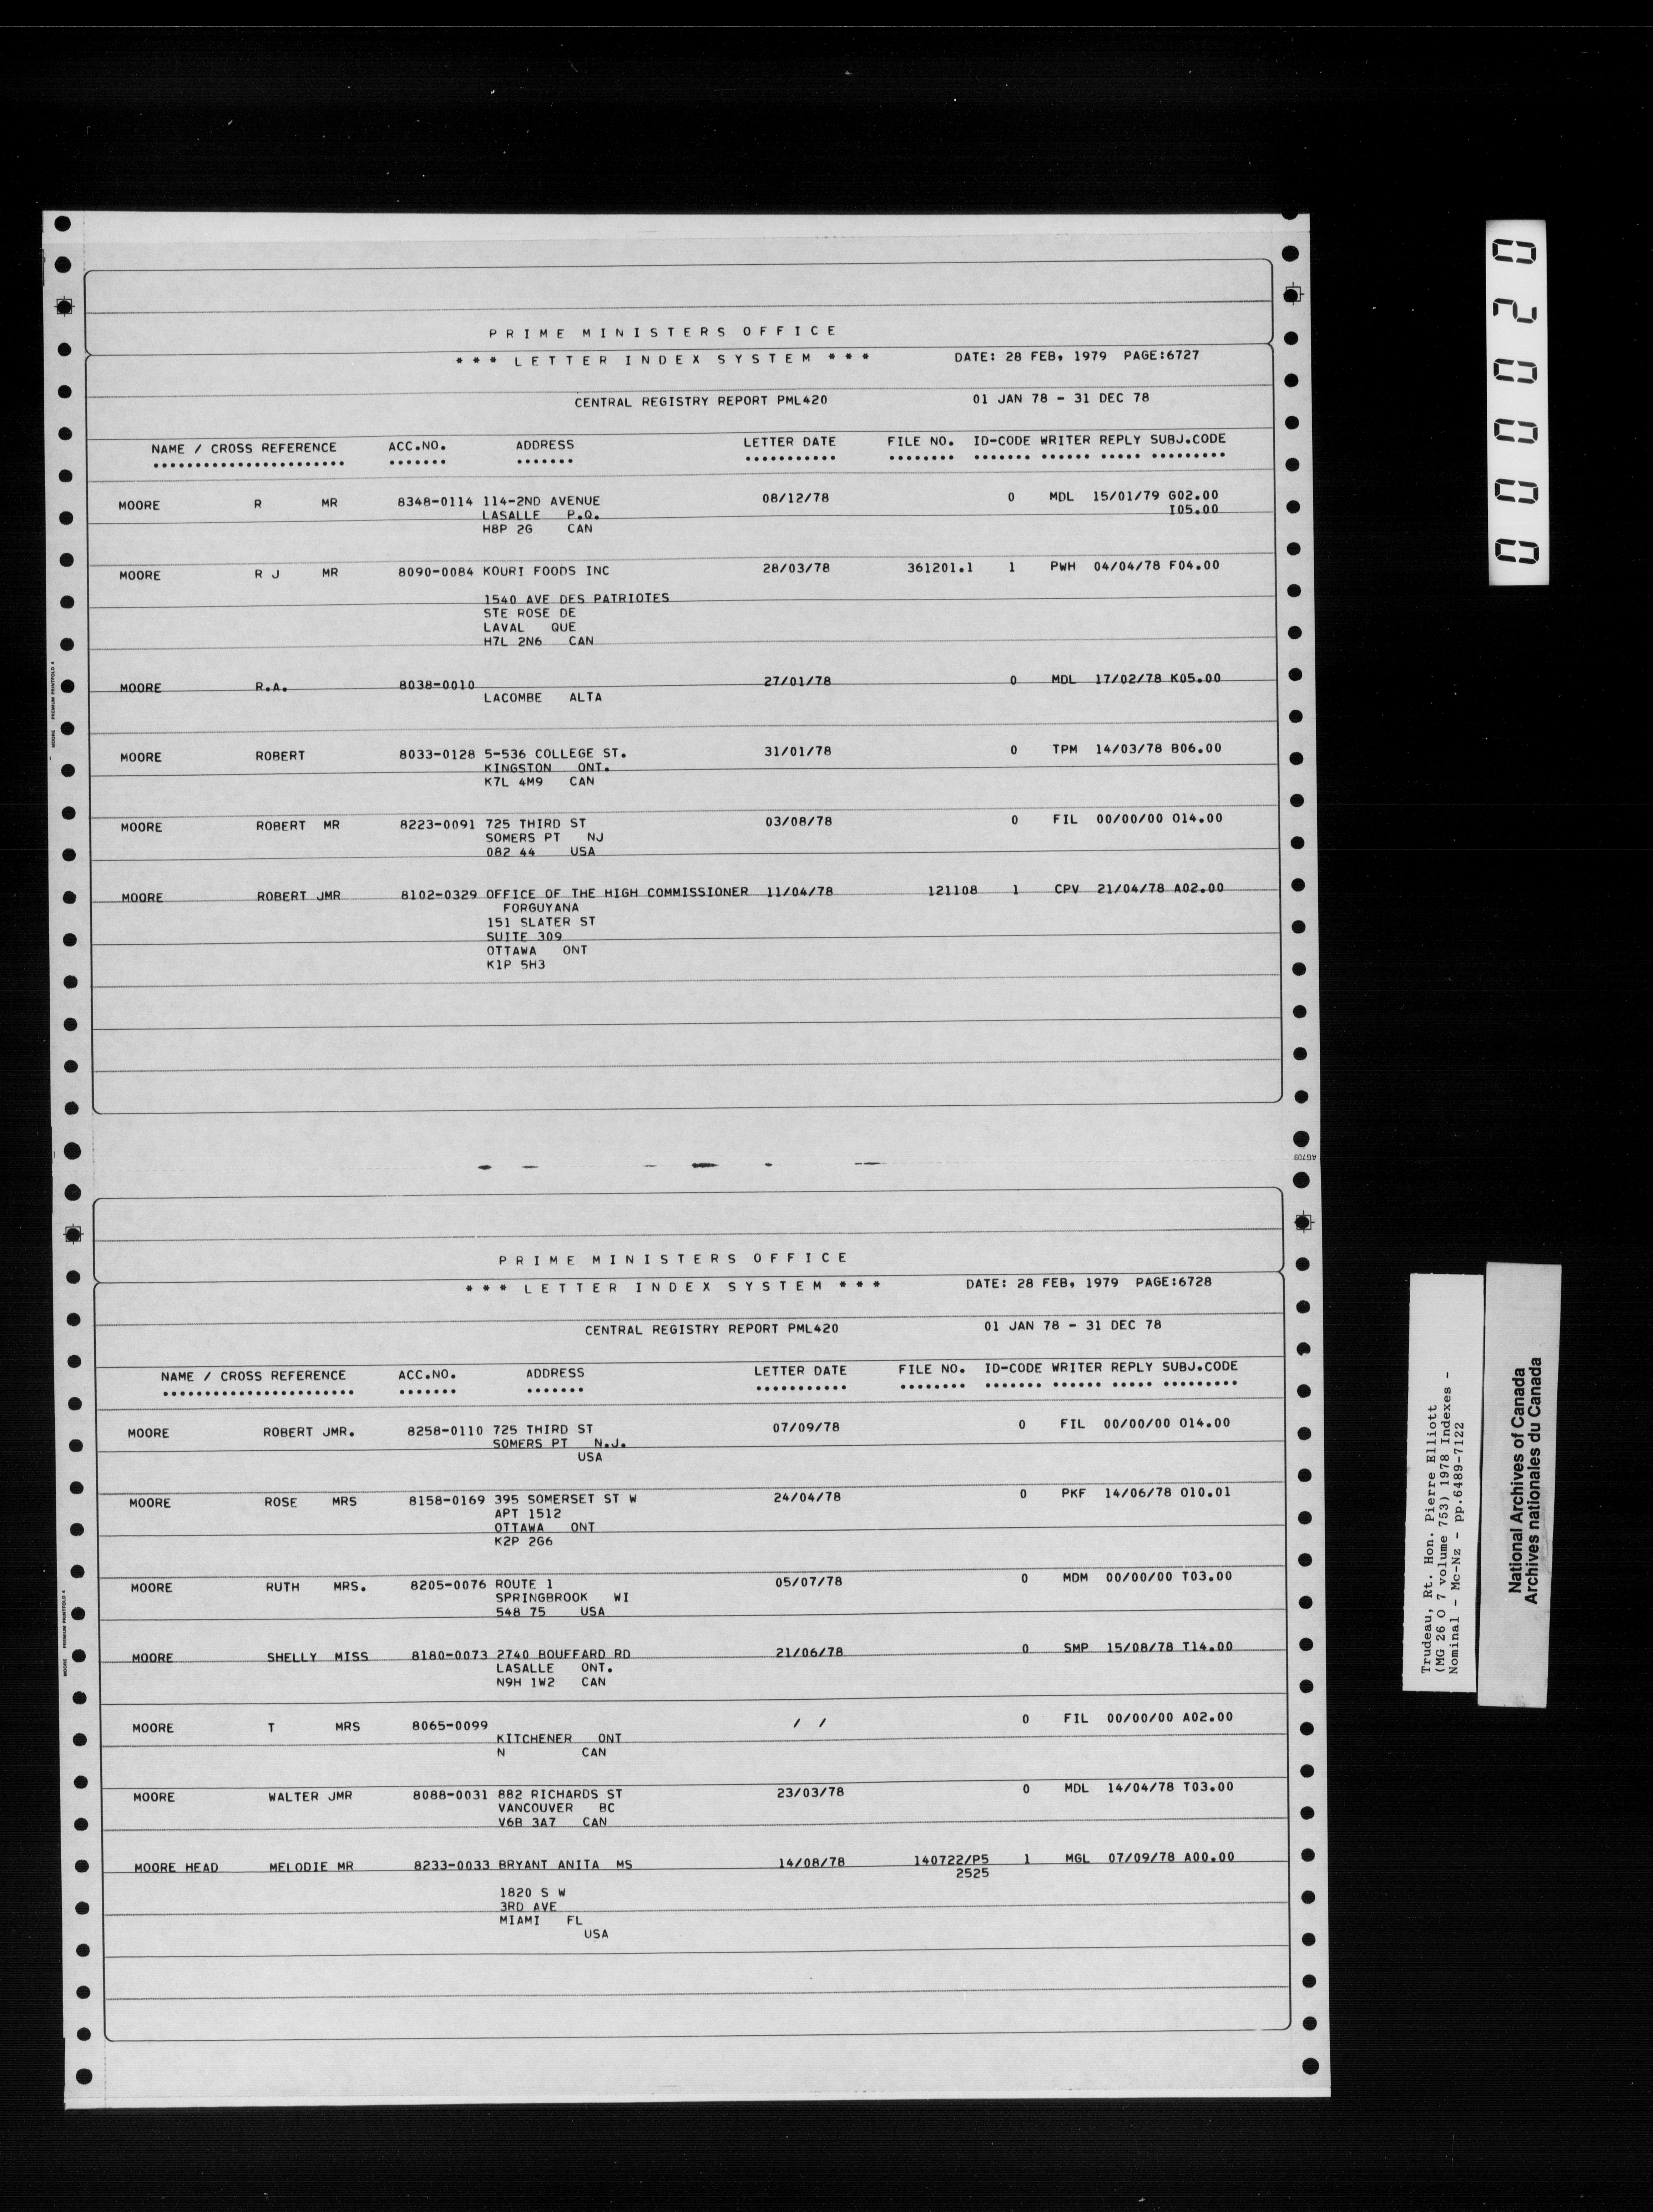 PRIME MINISTERS OFFICE
*** LETTER INDEX SYSTEM *** DATE: 28 FEB, 1979 PAGE:6727
CENTRAL REGISTRY REPORT PML420 01 JAN 78 - 31 DEC 78
NAME / CROSS REFERENCE ACC.NO. ADDRESS LETTER DATE FILE NO. ID-CODE WRITER REPLY SUBJ.CODE
MOORE R MR 8348-0114 114-2ND AVENUE 08/12/78 0 MDL 15/01/79 G02.00
LASALLE P.Q. I05.00
H8P 2G CAN
MOORE R J MR 8090-0084 KOURI FOODS INC 28/03/78 361201.1 1 PWH 04/04/78 F04.00
1540 AVE DES PATRIOTES
STE ROSE DE
LAVAL QUE
H7L 2N6 CAN
MOORE R.A. 8038-0010 27/01/78 0 MDL 17/02/78 K05.00
LACOMBE ALTA
MOORE ROBERT 8033-0128 5-536 COLLEGE ST. 31/01/78 0 TPM 14/03/78 B06.00
KINGSTON ONT.
K7L 4M9 CAN
MOORE ROBERT MR 8223-0091 725 THIRD ST 03/08/78 0 FIL 00/00/00 O14.00
SOMERS PT NJ
082 44 USA
MOORE ROBERT JMR 8102-0329 OFFICE OF THE HIGH COMMISSIONER 11/04/78 121108 1 CPV 21/04/78 A02.00
FORGUYANA
151 SLATER ST
SUITE 309
OTTAWA ONT
K1P 5H3
PRIME MINISTERS OFFICE
*** LETTER INDEX SYSTEM *** DATE: 28 FEB, 1979 PAGE:6728
CENTRAL REGISTRY REPORT PML420 01 JAN 78 - 31 DEC 78
NAME / CROSS REFERENCE ACC.NO. ADDRESS LETTER DATE FILE NO. ID-CODE WRITER REPLY SUBJ.CODE
MOORE ROBERT JMR. 8258-0110 725 THIRD ST 07/09/78 0 FIL 00/00/00 O14.00
SOMERS PT N.J.
USA
MOORE ROSE MRS 8158-0169 395 SOMERSET ST W 24/04/78 0 PKF 14/06/78 O10.01
APT 1512
OTTAWA ONT
K2P 2G6
MOORE RUTH MRS. 8205-0076 ROUTE 1 05/07/78 0 MDM 00/00/00 T03.00
SPRINGBROOK WI
548 75 USA
MOORE SHELLY MISS 8180-0073 2740 BOUFFARD RD 21/06/78 0 SMP 15/08/78 T14.00
LASALLE ONT.
N9H 1W2 CAN
MOORE T MRS 8065-0099 / / 0 FIL 00/00/00 A02.00
KITCHENER ONT
N CAN
MOORE WALTER JMR 8088-0031 882 RICHARDS ST 23/03/78 0 MDL 14/04/78 T03.00
VANCOUVER BC
V6B 3A7 CAN
MOORE HEAD MELODIE MR 8233-0033 BRYANT ANITA MS 14/08/78 140722/P5 1 MGL 07/09/78 A00.00
2525
1820 S W
3RD AVE
MIAMI FL
USA
MOORE PREMIUM PRINTFOLD 4
MOORE PREMIUM PRINTFOLD 4
AG703
000020
Trudeau, Rt. Hon. Pierre Elliott
(MG 26 O 7 volume 753) 1978 Indexes -
Nominal - Mc-Nz - pp.6489-7122
National Archives of Canada
Archives nationales du Canada